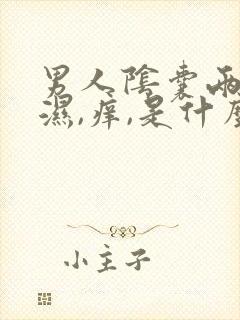 男人陰囊兩
濕,癢,是什麼
小主子